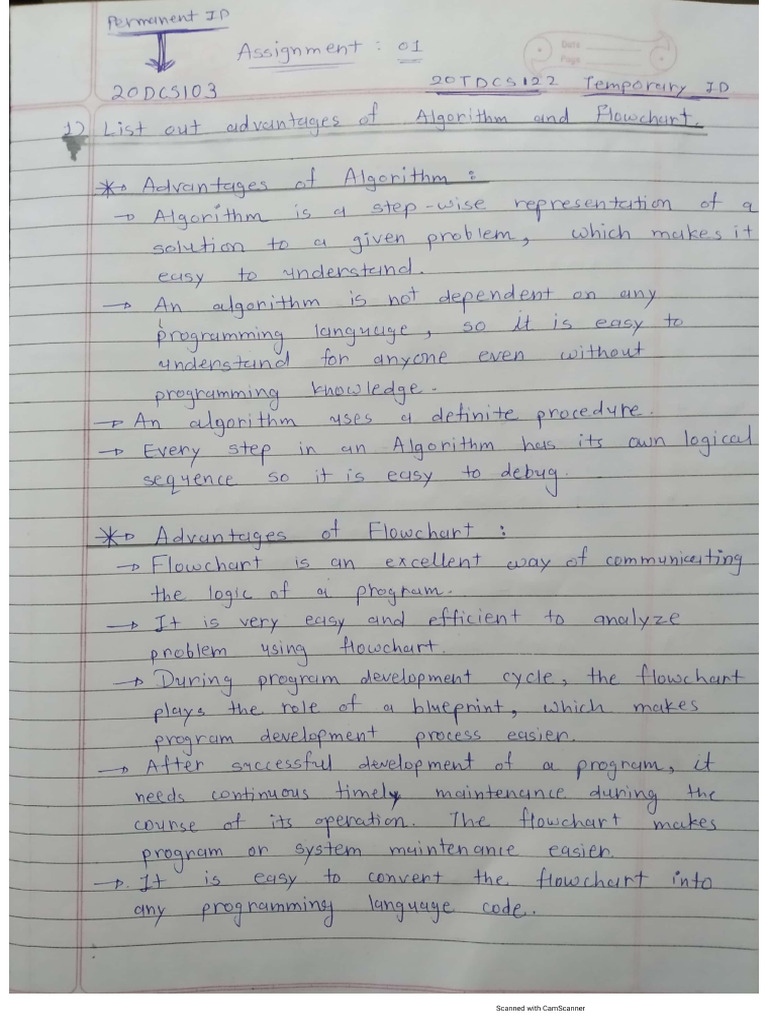 Permanent ID
Assignment : 01
Date
Page
20DCS103
20TDCS122 Temporary ID
1) List out advantages of Algorithm and Flowchart.
* Advantages of Algorithm :
→ Algorithm is a step-wise representation of a
solution to a given problem, which makes it
easy to understand.
→ An algorithm is not dependent on any
programming language, so it is easy to
understand for anyone even without
programming knowledge.
→ An algorithm uses a definite procedure.
→ Every step in an Algorithm has its own logical
sequence so it is easy to debug.
* Advantages of Flowchart :
→ Flowchart is an excellent way of communicating
the logic of a program.
→ It is very easy and efficient to analyze
problem using flowchart.
→ During program development cycle, the flowchart
plays the role of a blueprint, which makes
program development process easier.
→ After successful development of a program, it
needs continuous timely maintenance during the
course of its operation. The flowchart makes
program or system maintenance easier.
→ It is easy to convert the flowchart into
any programming language code.
Scanned with CamScanner